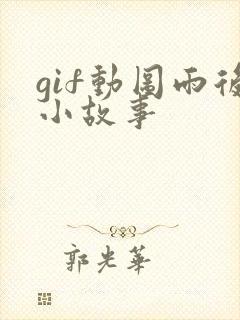 gif動图雨後
小故事
郭光華